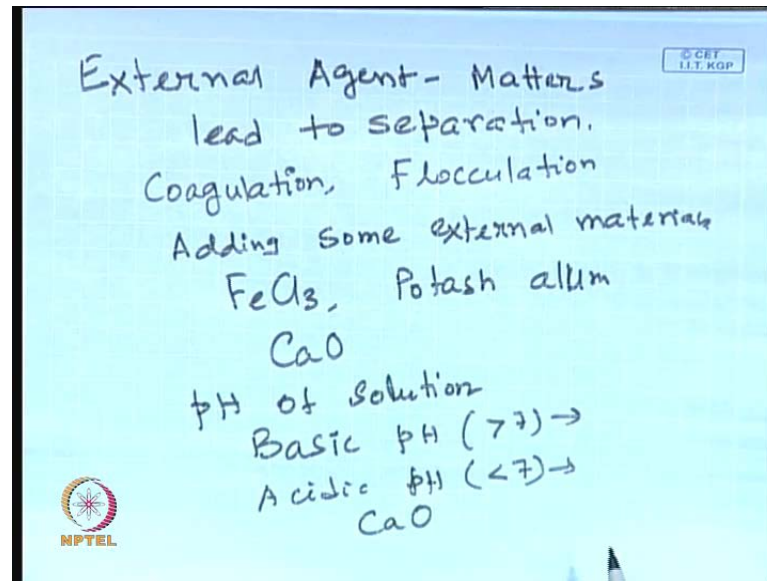 © CET
I.I.T. KGP
External Agent - Matters
lead to separation.
Coagulation, Flocculation
Adding some external materials
FeCl3, Potash alum
CaO
pH of solution
Basic pH (>7) →
Acidic pH (<7) →
CaO
NPTEL